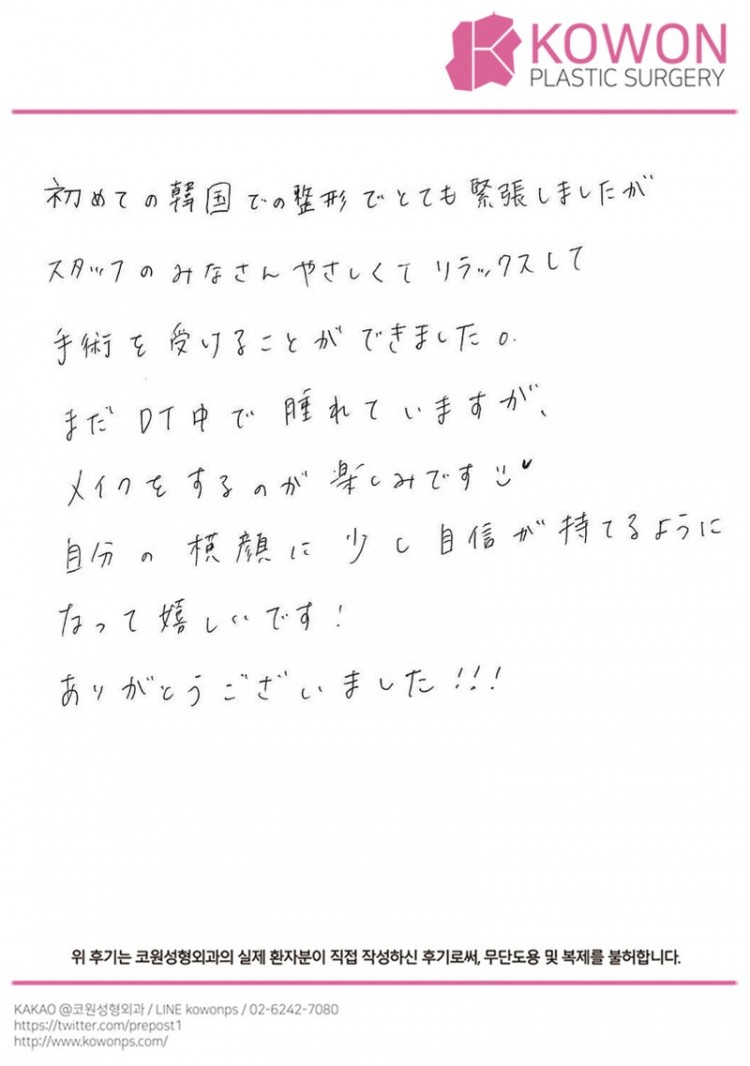 KOWON
PLASTIC SURGERY
初めての韓国での整形でとても緊張しましたが
スタッフのみなさんやさしくてリラックスして
手術を受けることができました。
まだDT中で腫れていますが、
メイクをするのが楽しみです
自分の横顔に少し自信が持てるように
なって嬉しいです!
ありがとうございました!!!
위 후기는 코원성형외과의 실제 환자분이 직접 작성하신 후기로써, 무단도용 및 복제를 불허합니다.
KAKAO @코원성형외과 / LINE kowonps / 02-6242-7080
https://twitter.com/prepost1
http://www.kowonps.com/